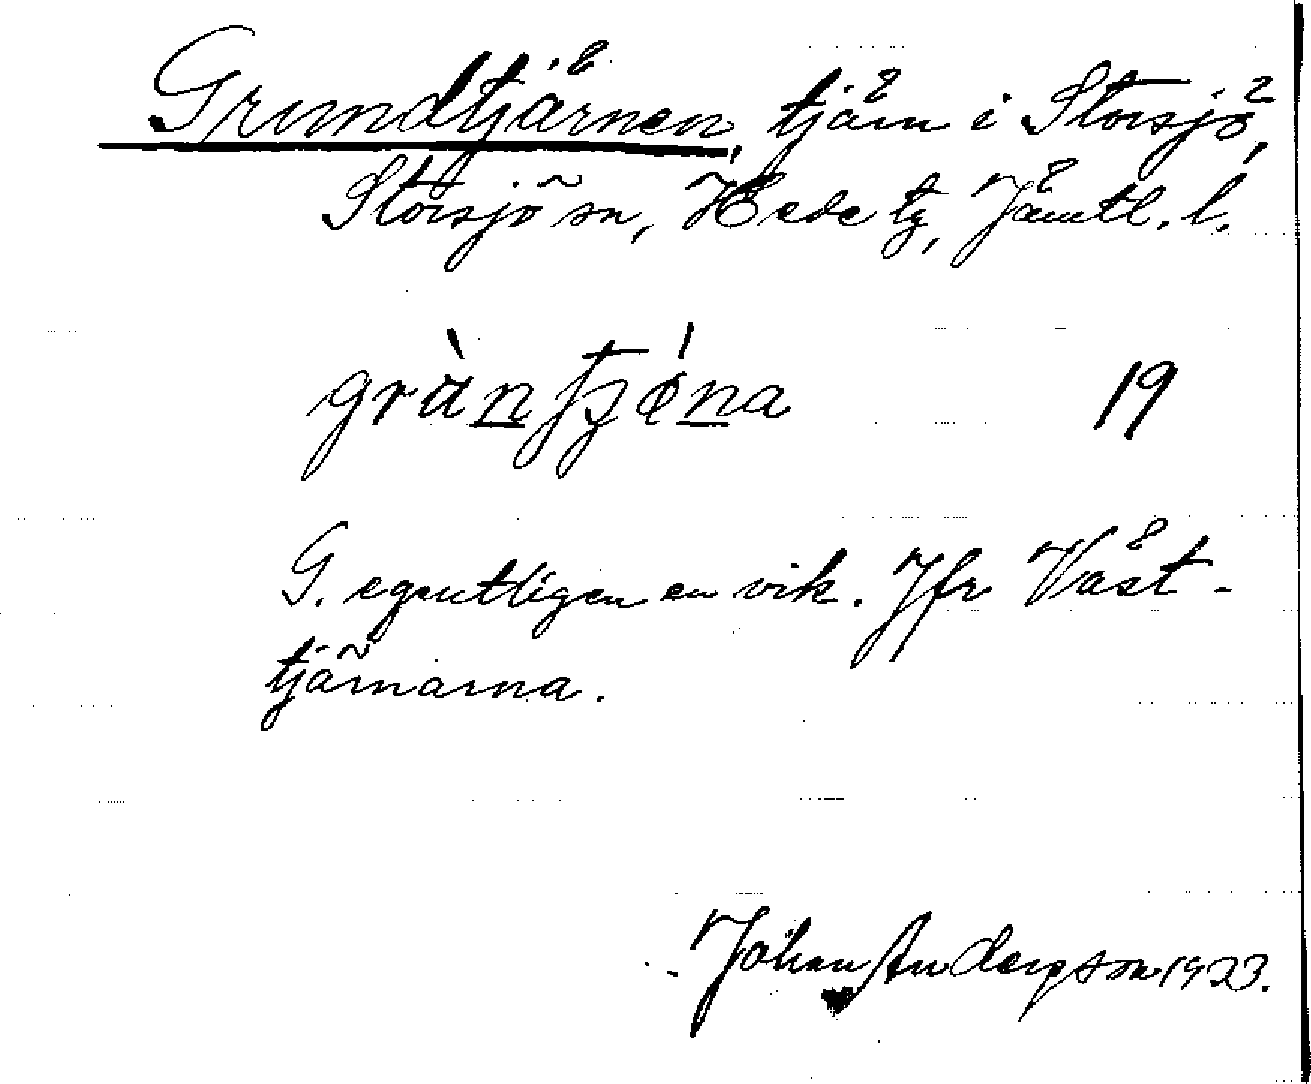 Grundtjärnen, tjärn i Storsjö,
Storsjö sn, Hede tg, Jämtl. l.
19
G. egentligen en vik. Jfr Väst-
tjärnarna.
Johan Anderson 1923.